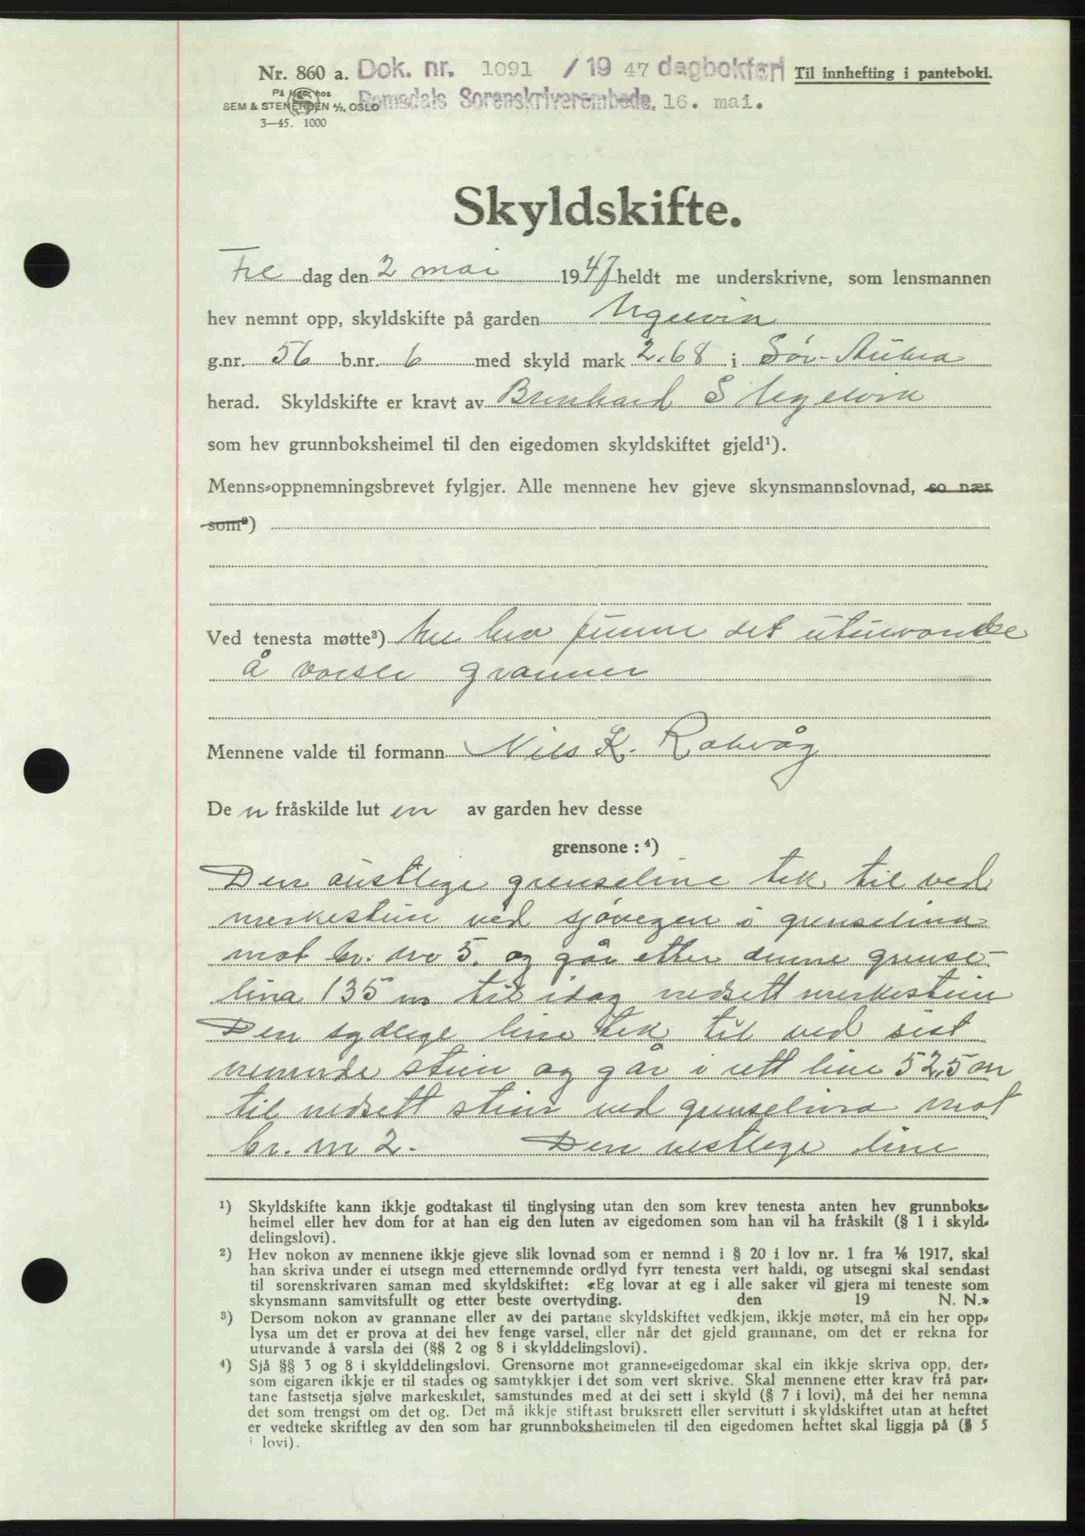 Nr. 860 a. Dok. nr. 1091 / 19 47 dagbokført Til innhefting i panteboki.
På hos
SEM & STENERSEN A/S, OSLO Romsdals Sorenskriverembede, 16. mai.
3—45. 1000
Skyldskifte.
Fre dag den 2 mai 1947 heldt me underskrivne, som lensmannen
hev nemnt opp, skyldskifte på garden
g.nr. 56 b.nr. 6 med skyld mark 2.68 i Sør-Aukra
herad. Skyldskifte er kravt av Bernhard S
som hev grunnboksheimel til den eigedomen skyldskiftet gjeld¹).
Menns-oppnemningsbrevet fylgjer. Alle mennene hev gjeve skynsmannslovnad, so nær
som²)
Ved tenesta møtte³) Me har funne det uturvande
å varsle granner
Mennene valde til formann Nils K. Rakvåg
De n fråskilde lut en av garden hev desse
grensone : ⁴)
Den austlege grenselina tek til ved
merkestein ved sjøvegen i grenselina
mot br. no 5. og går etter denne grense-
lina 135 m til idag nedsett merkestein
Den sydlege line tek til ved sist
nemnde stein og går i rett line 52,5 m
til nedsett stein ved grenselina mot
br. nr 2. Den vestlege line
¹) Skyldskifte kann ikkje godtakast til tinglysing utan den som krev tenesta anten hev grunnboks-
heimel eller hev dom for at han eig den luten av eigedomen som han vil ha fråskilt (§ 1 i skyld-
delingslovi).
²) Hev nokon av mennene ikkje gjeve slik lovnad som er nemnd i § 20 i lov nr. 1 fra 1/6 1917, skal
han skriva under ei utsegn med etternemnde ordlyd fyrr tenesta vert haldi, og utsegni skal sendast
til sorenskrivaren saman med skyldskiftet: «Eg lovar at eg i alle saker vil gjera mi teneste som
skynsmann samvitsfullt og etter beste overtyding. den 19 N. N.»
³) Dersom nokon av grannane eller av dei partane skyldskiftet vedkjem, ikkje møter, må ein her opp-
lysa um det er prova at dei hev fenge varsel, eller når det gjeld grannane, om det er rekna for
uturvande å varsla dei (§§ 2 og 8 i skylddelingslovi).
⁴) Sjå §§ 3 og 8 i skylddelingslovi. Grensorne mot granne-eigedomar skal ein ikkje skriva opp, der-
som eigaren ikkje er til stades og samtykkjer i det som vert skrive. Skal mennene etter krav frå par-
tane fastsetja sjølve markeskilet, samstundes med at dei sett i skyld (§ 7 i lovi), må dei her nemna
det som trengst om det og. Det må ikkje stiftast bruksrett eller servitutt i skyldskiftet utan at heftet
er vedteke skriftleg av den som har grunnboksheimelen til den eigedomen heftet skal liggja på (§ 5
i lovi).